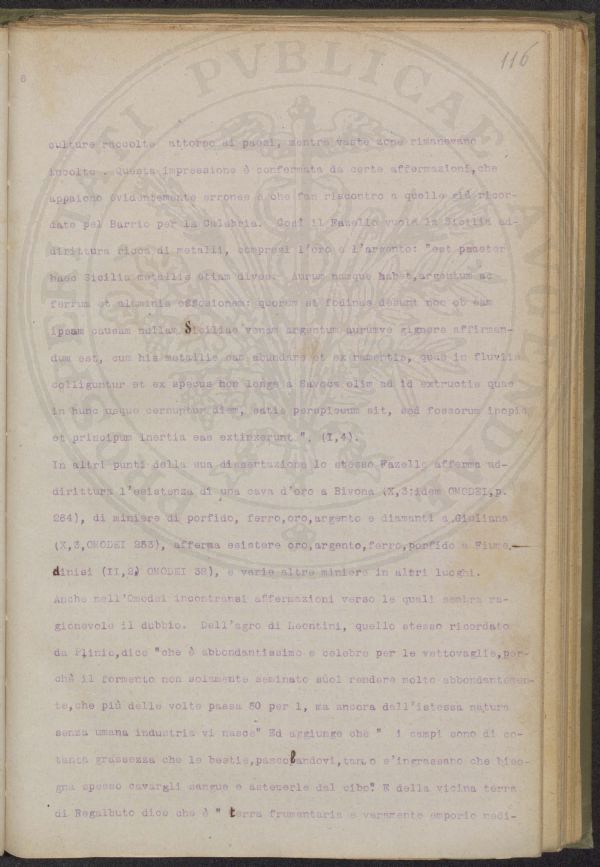 116
8
PROSPERITATI PVBLICAE AVGENDAE
culture raccolte attorno ai paesi, mentre vaste zone rimanevano
incolte . Questa impressione è confermata da certe affermazioni,che
appaiono evidentemente erronee e che fan riscontro a quelle già ricor-
date pel Barrio per la Calabria. Così il Fazello vuole la Sicilia ad-
dirittura ricca di metalli, compresi l'oro e l'argento: "est praeter
haec Sicilia metallis etiam dives. Aurum namque habet,argentum ac
ferrum et aluminis officionem: quorum et fodinae desunt nec ob eam
ipsam causam nullam Siciliae venam argentum aurumve gignere affirman-
dum est, cum his metallis eam abundare et ex ramentis, quae in fluviis
colliguntur et ex specus hoc longe a Savoca olim ad id extructis quae
in hunc usque cernuntur diem, satis perspicuum sit, sed fossorum inopia
et principum inertia eas extinxerunt ". (I,4).
In altri punti della sua dissertazione lo stesso Fazello afferma ad-
dirittura l'esistenza di una cava d'oro a Bivona (X,3;idem OMODEI,p.
264), di miniere di porfido, ferro,oro,argento e diamanti a Giuliana
(X,3,OMODEI 253), afferma esistere oro,argento,ferro,porfido a Fiume
dinisi (II,2, OMODEI 38), e varie altre miniere in altri luoghi.
Anche nell'Omodei incontransi affermazioni verso le quali sembra ra-
gionevole il dubbio. Dell'agro di Leontini, quello stesso ricordato
da Plinio,dice "che è abbondantissimo e celebre per le vettovaglie,per-
chè il formento non solamente seminato suol rendere molto abbondantemen-
te,che più delle volte passa 60 per 1, ma ancora dall'istessa natura
senza umana industria vi nasce" Ed aggiunge che " i campi sono di co-
tanta grassezza che le bestie,pascolandovi,tanto s'ingrassano che biso-
gna spesso cavargli sangue e astenerle dal cibo". E della vicina terra
di Regalbuto dice che è " terra frumentaria e veramente emporio medi-